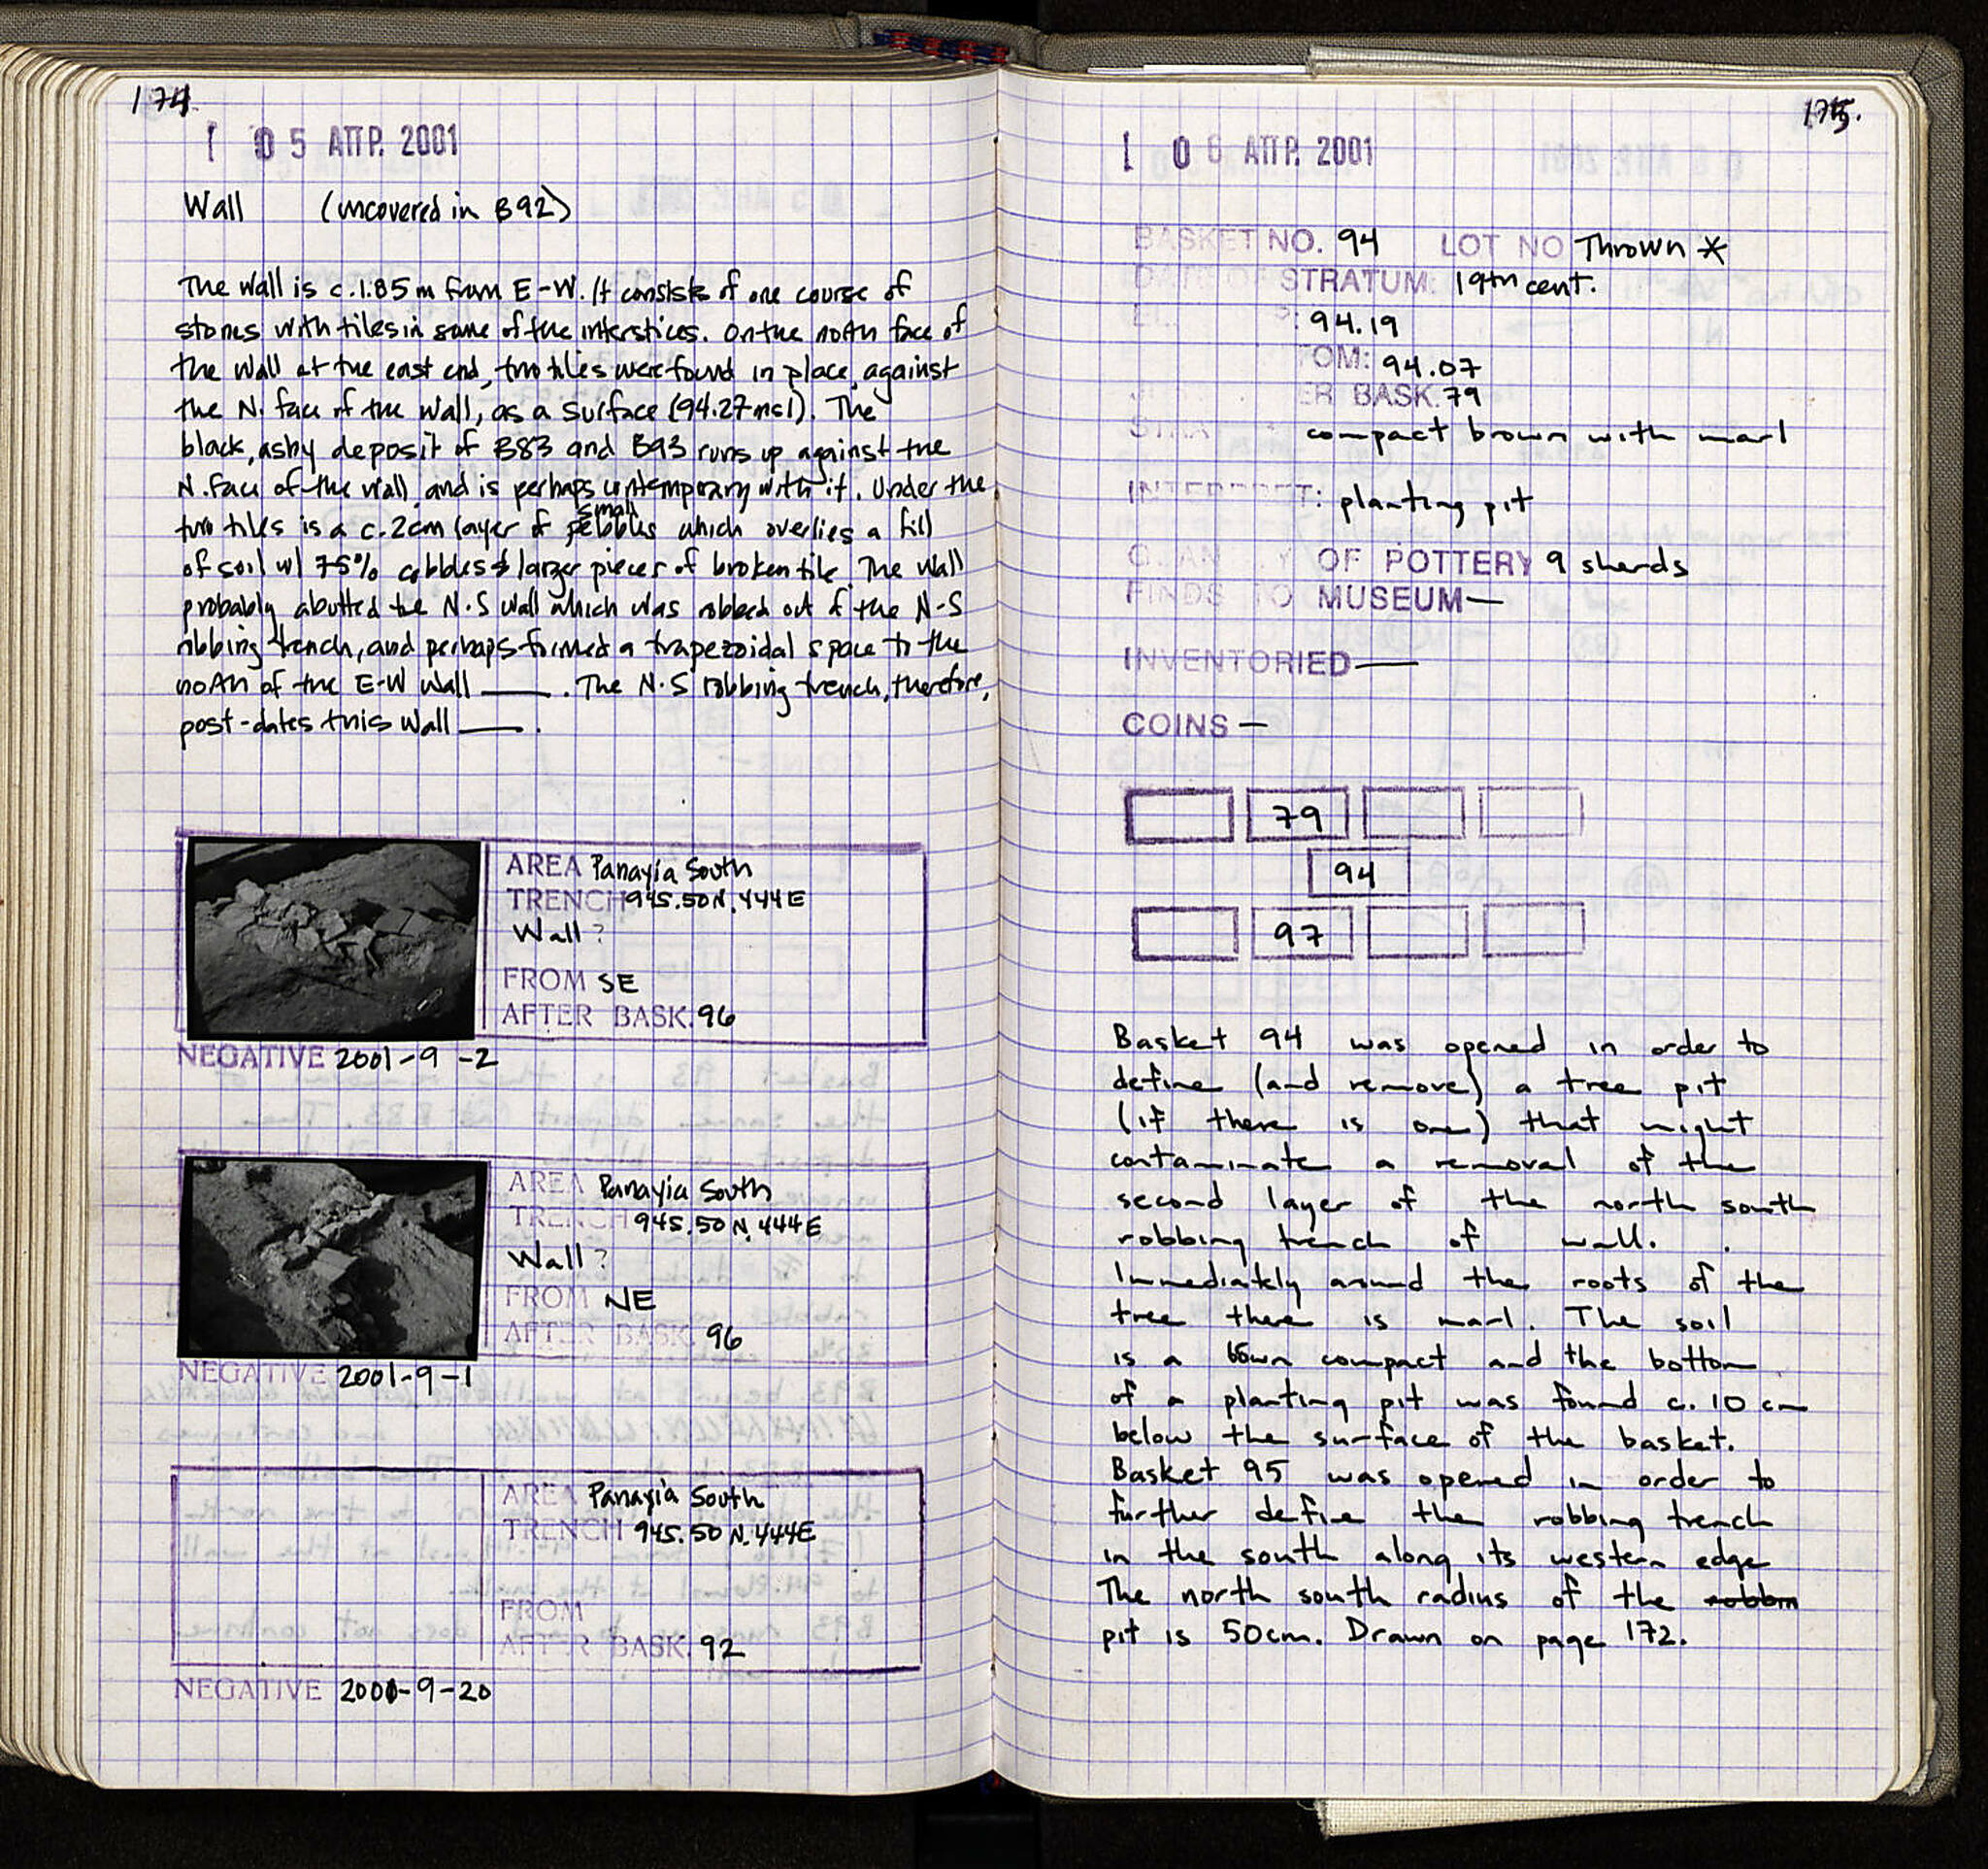 174.
05 ΑΠΡ. 2001
Wall (uncovered in B92)
The wall is c.1.85m from E-W. It consists of one course of
stones with tiles in some of the interstices. On the north face of
the wall at the east end, two tiles were found in place, against
the N. face of the wall, as a surface (94.27msl). The
black, ashy deposit of B83 and B93 runs up against the
N. face of the wall and is perhaps contemporary with it. Under the
two tiles is a c.2cm layer of small pebbles which overlies a fill
of soil w/ 75% cobbles & larger pieces of broken tile. The wall
probably abutted the N-S wall which was robbed out of the N-S
robbing trench, and perhaps formed a trapezoidal space to the
north of the E-W wall ___. The N-S robbing trench, therefore,
post-dates this wall ___.
AREA Panayia South
TRENCH 945.50N, 444E
Wall?
FROM SE
AFTER BASK. 96
NEGATIVE 2001-9-2
AREA Panayia South
TRENCH 945.50N, 444E
Wall?
FROM NE
AFTER BASK. 96
NEGATIVE 2001-9-1
AREA Panayia South
TRENCH 945.50N, 444E
FROM
AFTER BASK. 92
NEGATIVE 2001-9-20
175.
06 ΑΠΡ. 2001
BASKET NO. 94 LOT NO Thrown *
DATE OF STRATUM: 19th cent.
EL. P: 94.19
TOM: 94.07
ER BASK. 79
STRA compact brown with marl
INTERPRET: planting pit
QUANTITY OF POTTERY 9 sherds
FINDS TO MUSEUM —
INVENTORIED —
COINS —
79
94
97
Basket 94 was opened in order to
define (and remove) a tree pit
(if there is one) that might
contaminate a removal of the
second layer of the north south
robbing trench of wall.
Immediately around the roots of the
tree there is marl. The soil
is a brown compact and the bottom
of a planting pit was found c. 10 cm
below the surface of the basket.
Basket 95 was opened in order to
further define the robbing trench
in the south along its western edge
The north south radius of the robbin
pit is 50cm. Drawn on page 172.